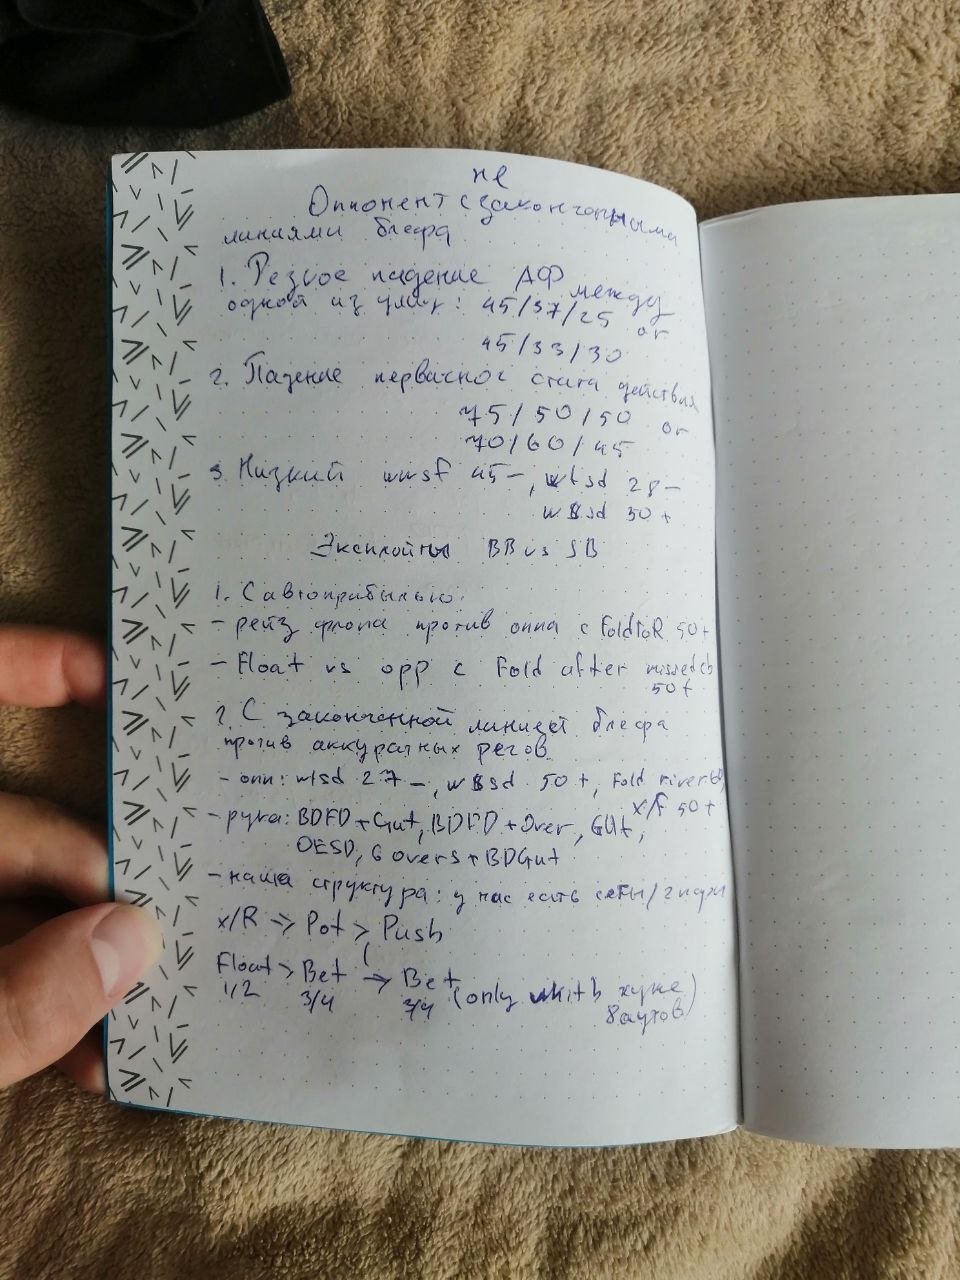 не
Оппонент с законченными
линиями блефа
1. Резкое падение АФ между
одной из улиц: 45/37/25 or
45/33/30
2. Падение первичног стата действия
75/50/50 or
70/60/45
3. Низкий wwsf 45-, wtsd 28-
w$sd 50+
Эксплойты BB vs SB
1. С автоприбылью:
- рейз флопа против оппа с FoldToR 50+
- Float vs opp с Fold after missed cb
50+
2. С законченной линией блефа
против аккуратных регов
- опп: wtsd 27-, w$sd 50+, Fold river
x/F 50+
- рука: BDFD+Gut, BDFD+Over, GUt,
OESD, 6 overs+BDGut
- наша структура: у нас есть сеты/2 пары
x/R -> Pot > Push
Float > Bet -> Bet (only with хуже
1/2 3/4 3/4 8 аутов)